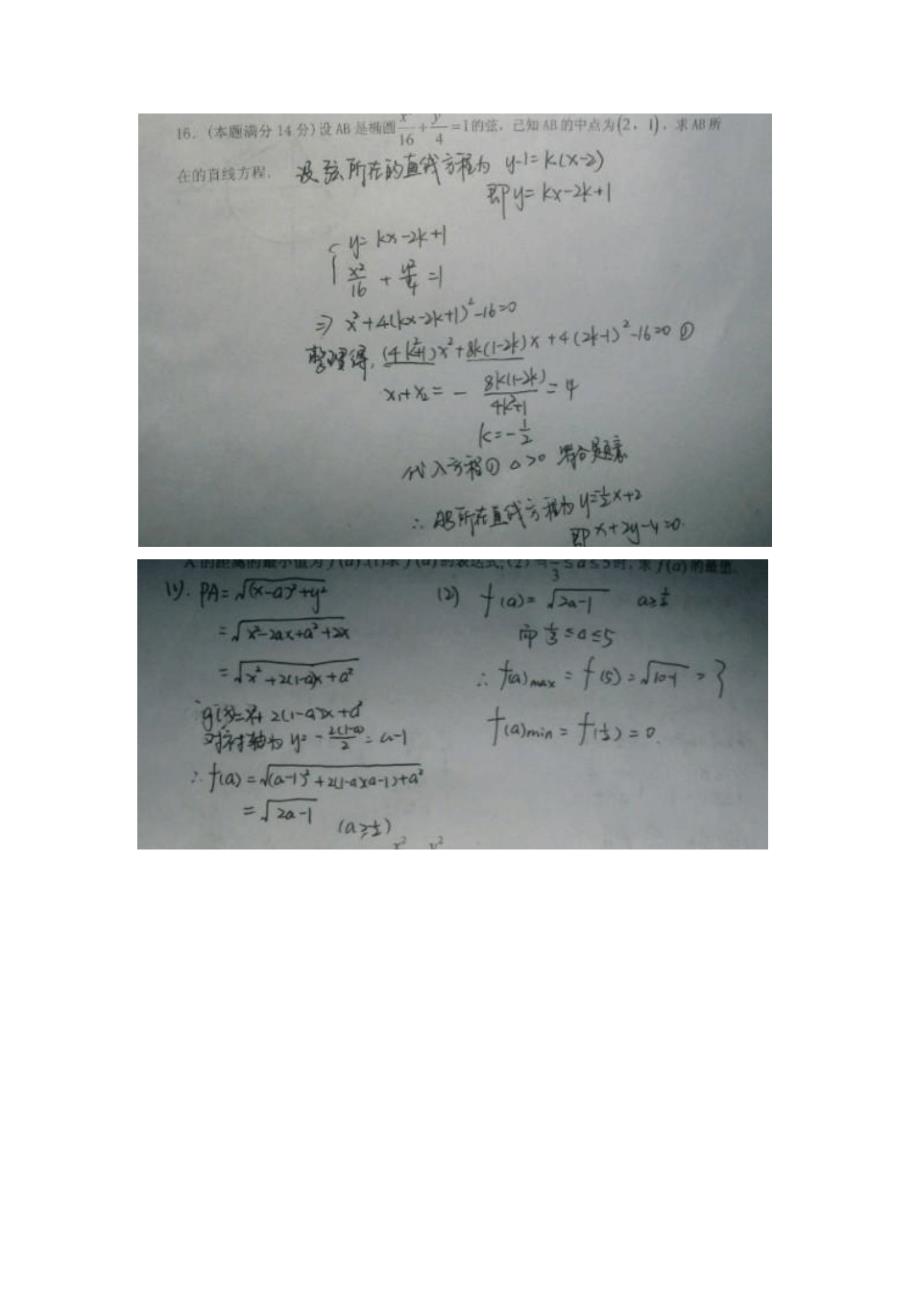 16. (本题满分 14 分)设 AB 是椭圆 x²/16 + y²/4 =1的弦, 已知 AB 的中点为(2, 1), 求 AB 所
在的直线方程. 设弦所在的直线方程为 y-1=k(x-2)
即y=kx-2k+1
{ y=kx-2k+1
x²/16 + y²/4 =1
⇒ x²+4(kx-2k+1)²-16=0
整理得, (4k²+1)x²+8k(1-2k)x+4(2k-1)²-16=0 ①
x₁+x₂= - 8k(1-2k)/4k²+1 =4
k=-1/2
代入方程① △>0 符合题意
∴ AB所在直线方程为 y=-1/2x+2
即 x+2y-4=0.
A 的距离的最小值为 f(a).(1)求 f(a)的表达式;(2)当1/3≤a≤5时,求 f(a)的最值.
(1). PA=√(x-a)²+y²
=√x²-2ax+a²+2x
=√x²+2(1-a)x+a²
对称轴为 y= -2(1-a)/2 =a-1
∴ f(a)=√(a-1)²+2(1-a)(a-1)+a²
=√2a-1 (a≥1/2)
(2) f(a)=√2a-1 a≥1/2
而 1/3≤a≤5
∴ f(a)max=f(5)=√10-1=3
f(a)min=f(1/2)=0.
x² y²